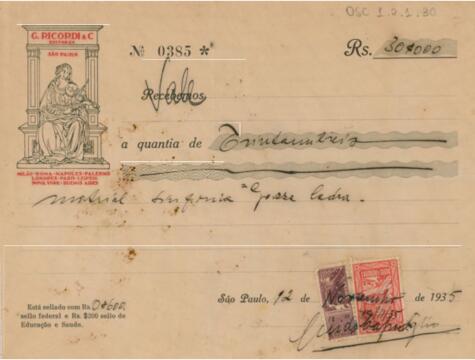 OSC 1.2.1.30
G. RICORDI & C
EDITORES
SÃO PAULO
Nº 0385 * Rs. 30$000
Valle
Recebemos
a quantia de Trinta mil reis
MILÃO-ROMA-NAPOLES-PALERMO
LONDRES-PARIS-LEIPZIG
NOVA YORK-BUENOS AIRES
material sinfonia
São Paulo, 12 de Novembro de 1935
Está sellado com Rs. 0$600
sello federal e Rs. $200 sello de
Educação e Saude.